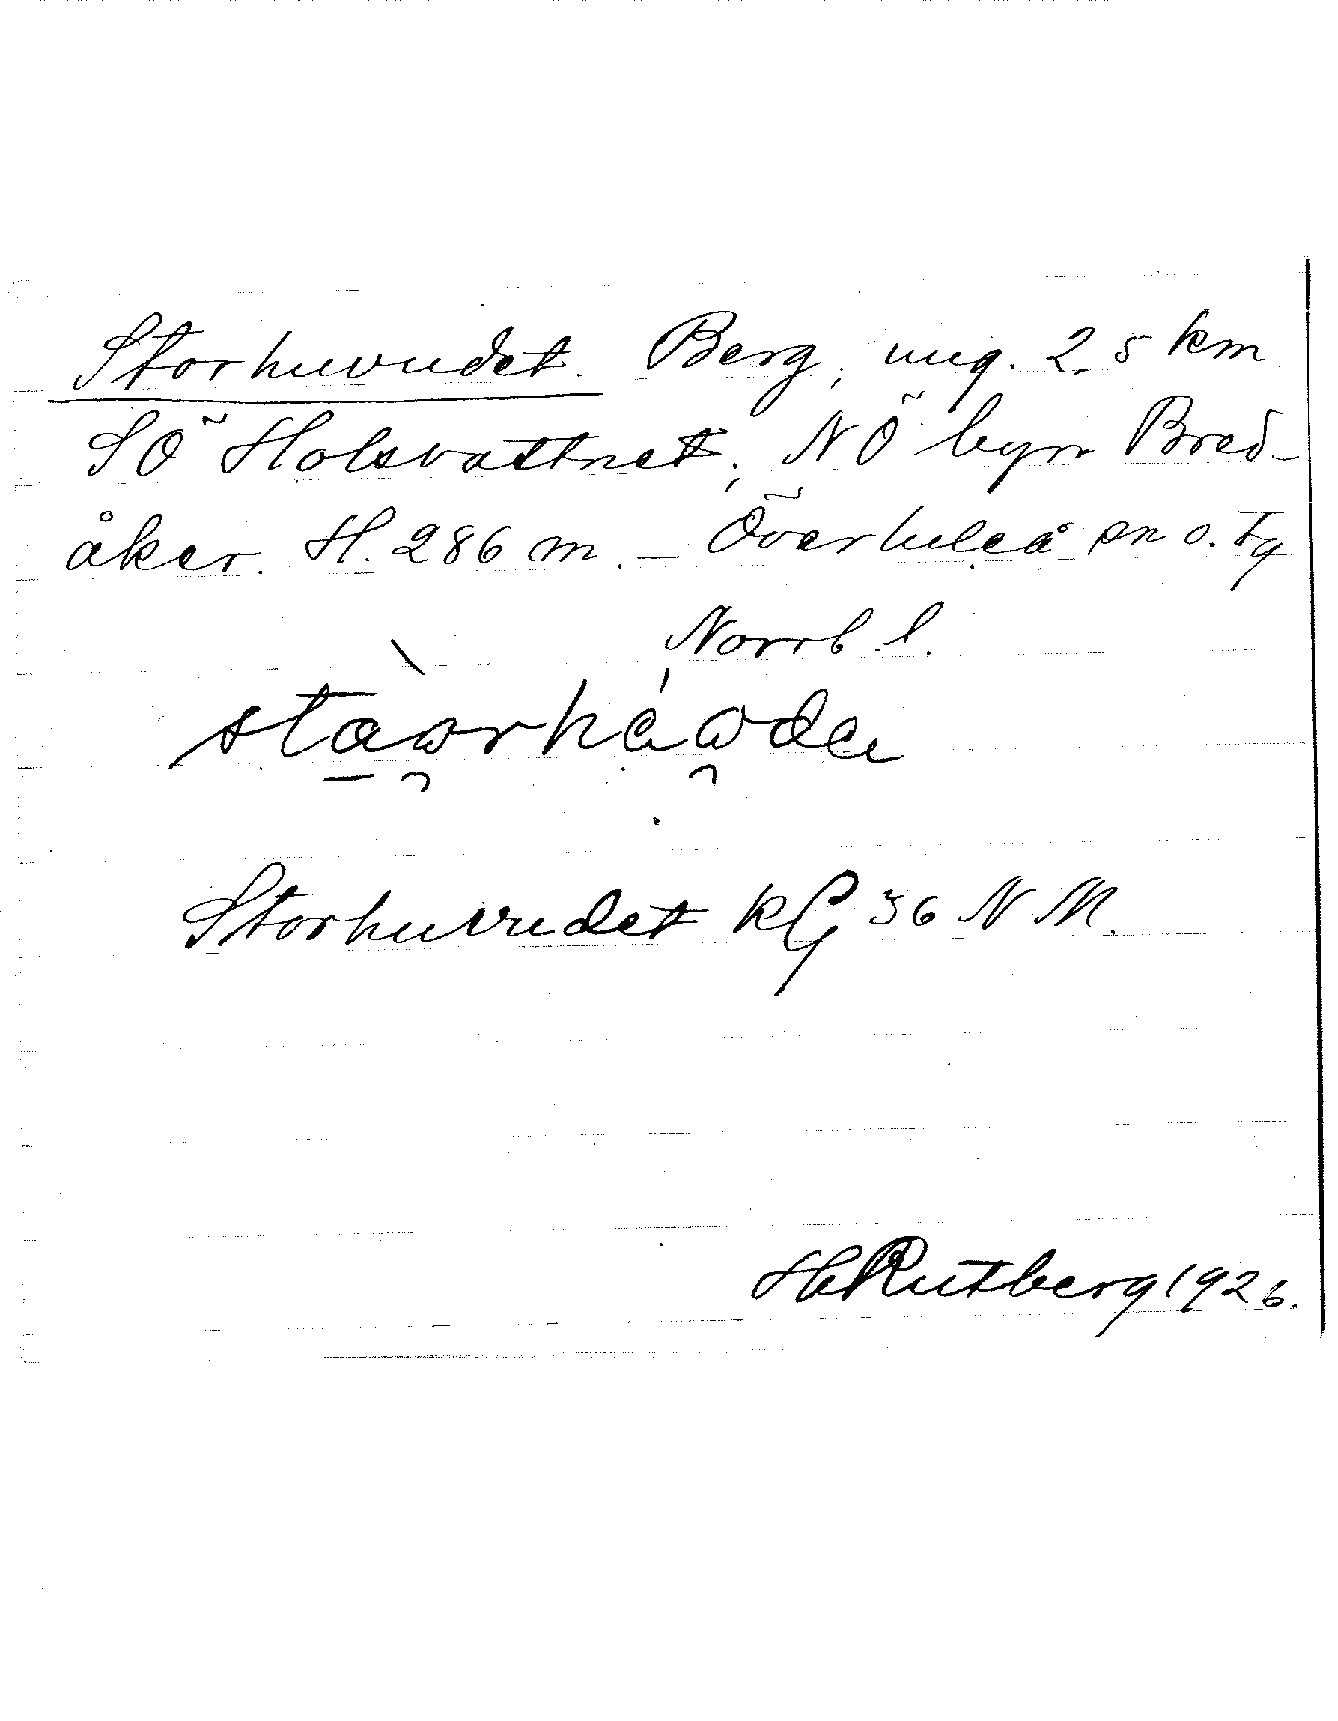 Storhuvudet. Berg, ung. 2,5 km
SÖ Holsvattnet, NÖ byn Bred-
åker. H. 286 m. – Överluleå sn o. tg
Norrb l.
Storhuvudet kG 36 N M.
H Rutberg 1926.